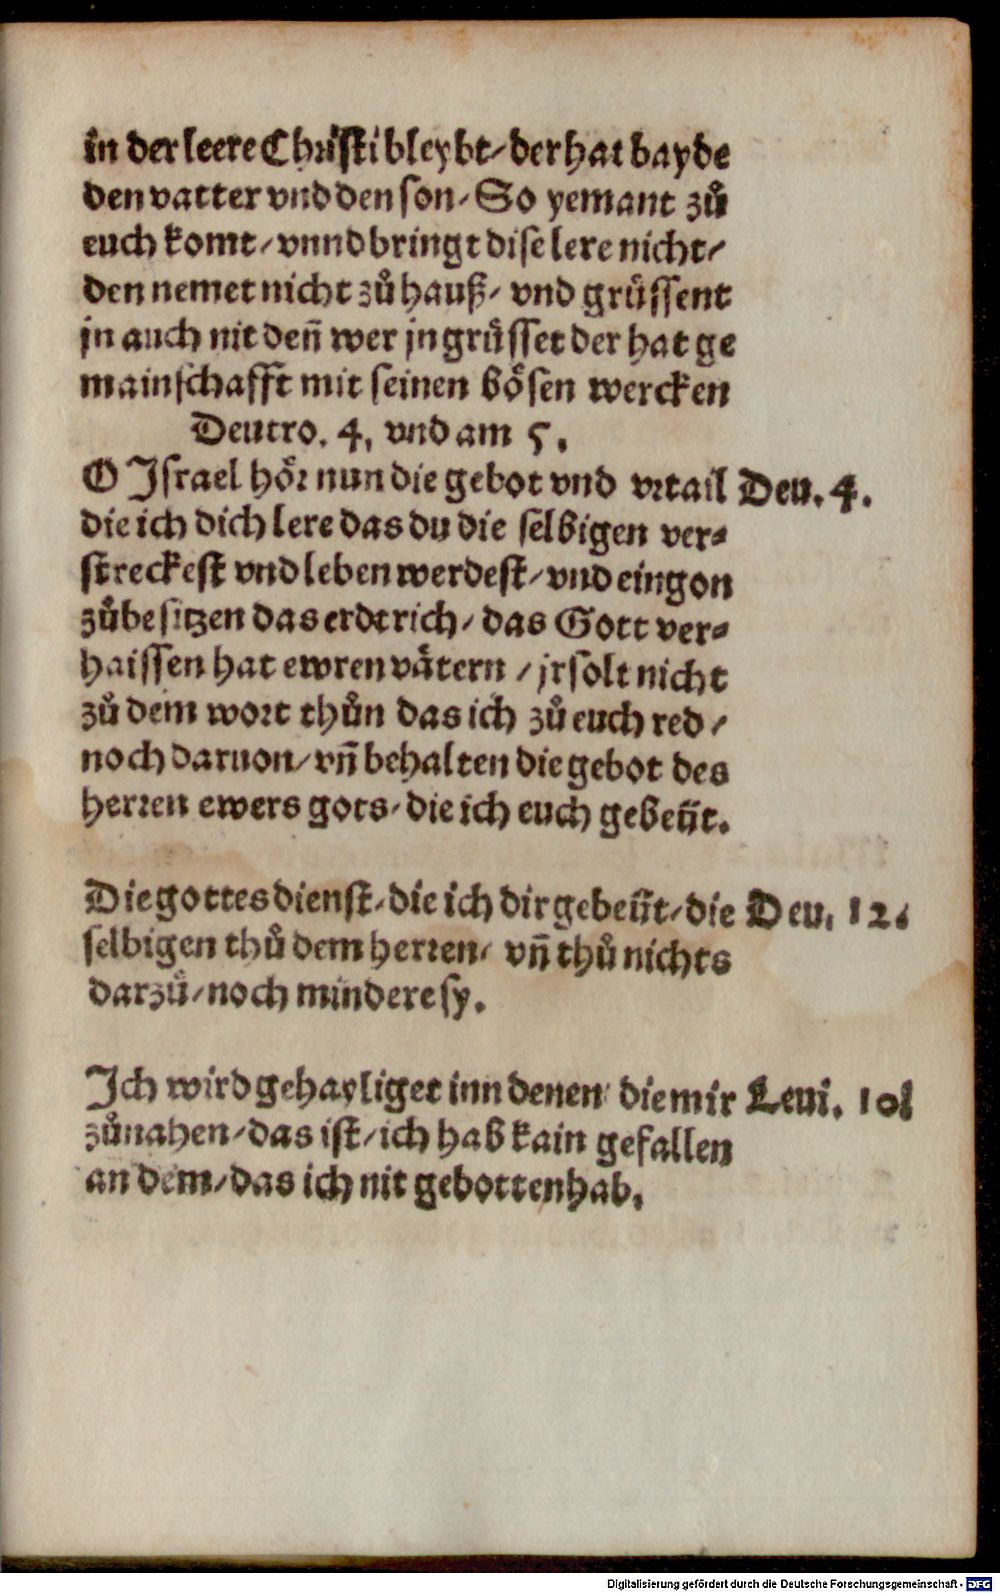 in der leere Christi bleybt/ der hat bayde
den vatter vnd den son/ So yemant zů
euch komt/ vnnd bringt dise lere nicht/
den nemet nicht zů hauß/ vnd grüssent
jn auch nit deñ wer jn grüsset der hat ge
mainschafft mit seinen bösen wercken
Deutro. 4, vnd am 5.
O Israel hör nun die gebot vnd vrtail Deu. 4.
die ich dich lere das du die selbigen ver-
streckest vnd leben werdest/ vnd eingon
zůbesitzen das erdtrich/ das Gott ver-
haissen hat ewren vätern / jr solt nicht
zů dem wort thůn das ich zů euch red/
noch daruon/ vñ behalten die gebot des
herren ewers gots/ die ich euch gebeüt.
Die gottes dienst/ die ich dir gebeüt/ die Deu. 12.
selbigen thů dem herren/ vñ thů nichts
darzů/ noch mindere sy.
Ich wird gehayliget inn denen die mir Leui. 10
zůnahen/ das ist/ ich hab kain gefallen
an dem/ das ich nit gebotten hab.
Digitalisierung gefördert durch die Deutsche Forschungsgemeinschaft - DFG